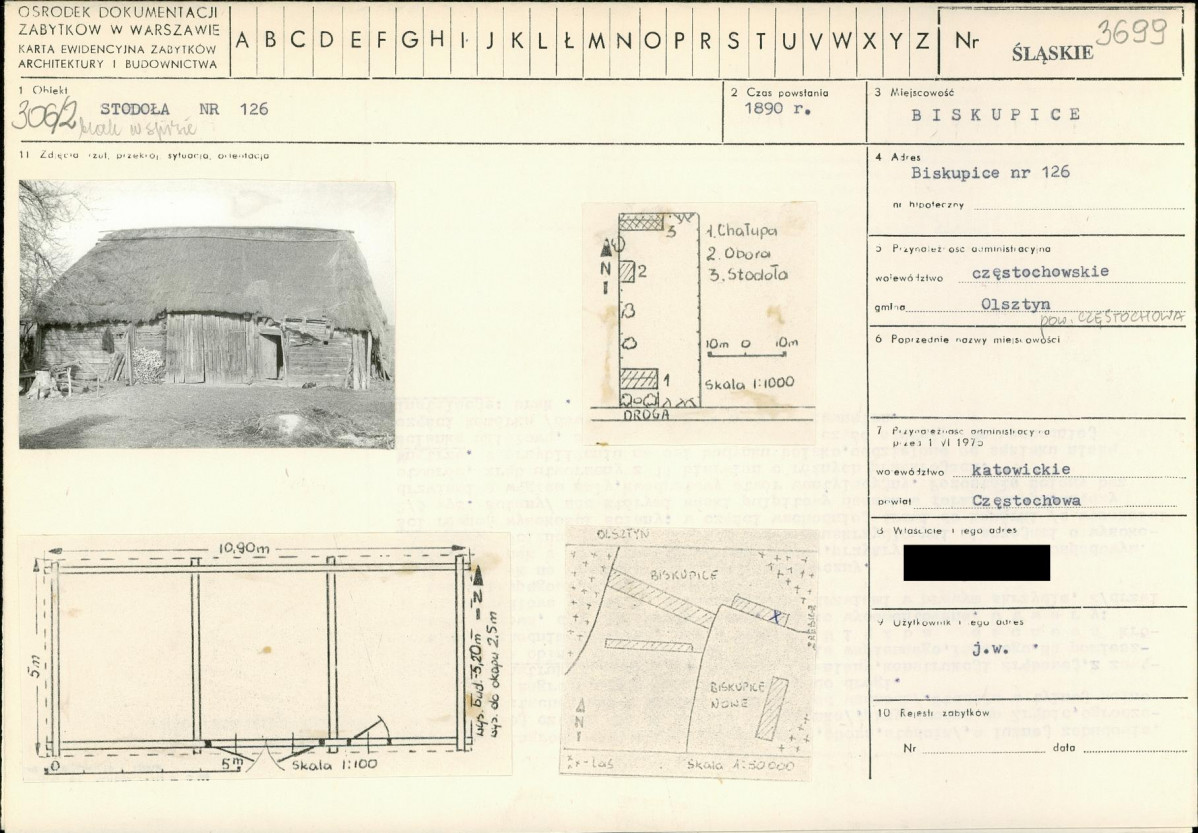 OŚRODEK DOKUMENTACJI
ZABYTKÓW W WARSZAWIE
KARTA EWIDENCYJNA ZABYTKÓW
ARCHITEKTURY I BUDOWNICTWA
A B C D E F G H I J K L Ł M N O P R S T U V W X Y Z
Nr
ŚLĄSKIE
3699
1 Obiekt
306/2
STODOŁA NR 126
brak w spisie
2 Czas powstania
1890 r.
3 Miejscowość
BISKUPICE
11 Zdjęcia rzut, przekrój, sytuacja, orientacja
4 Adres
Biskupice nr 126
nr hipoteczny
5 Przynależność administracyjna
województwo częstochowskie
gmina Olsztyn
pow. CZĘSTOCHOWA
6 Poprzednie nazwy miejscowości
7 Przynależność administracyjna
przed 1 VI 1975
województwo katowickie
powiat Częstochowa
8 Właściciel i jego adres
9 Użytkownik i jego adres
j.w.
10 Rejestr zabytków
Nr data
3
N
2
1
DROGA
1. Chałupa
2. Obora
3. Stodoła
10m 0 10m
Skala 1:1000
10,90m
5m
N
wys. bud. 5,20m
wys. do okapu 2,5m
0 5m Skala 1:100
OLSZTYN
BISKUPICE
X
BISKUPICE
NOWE
N
- Las Skala 1:50000